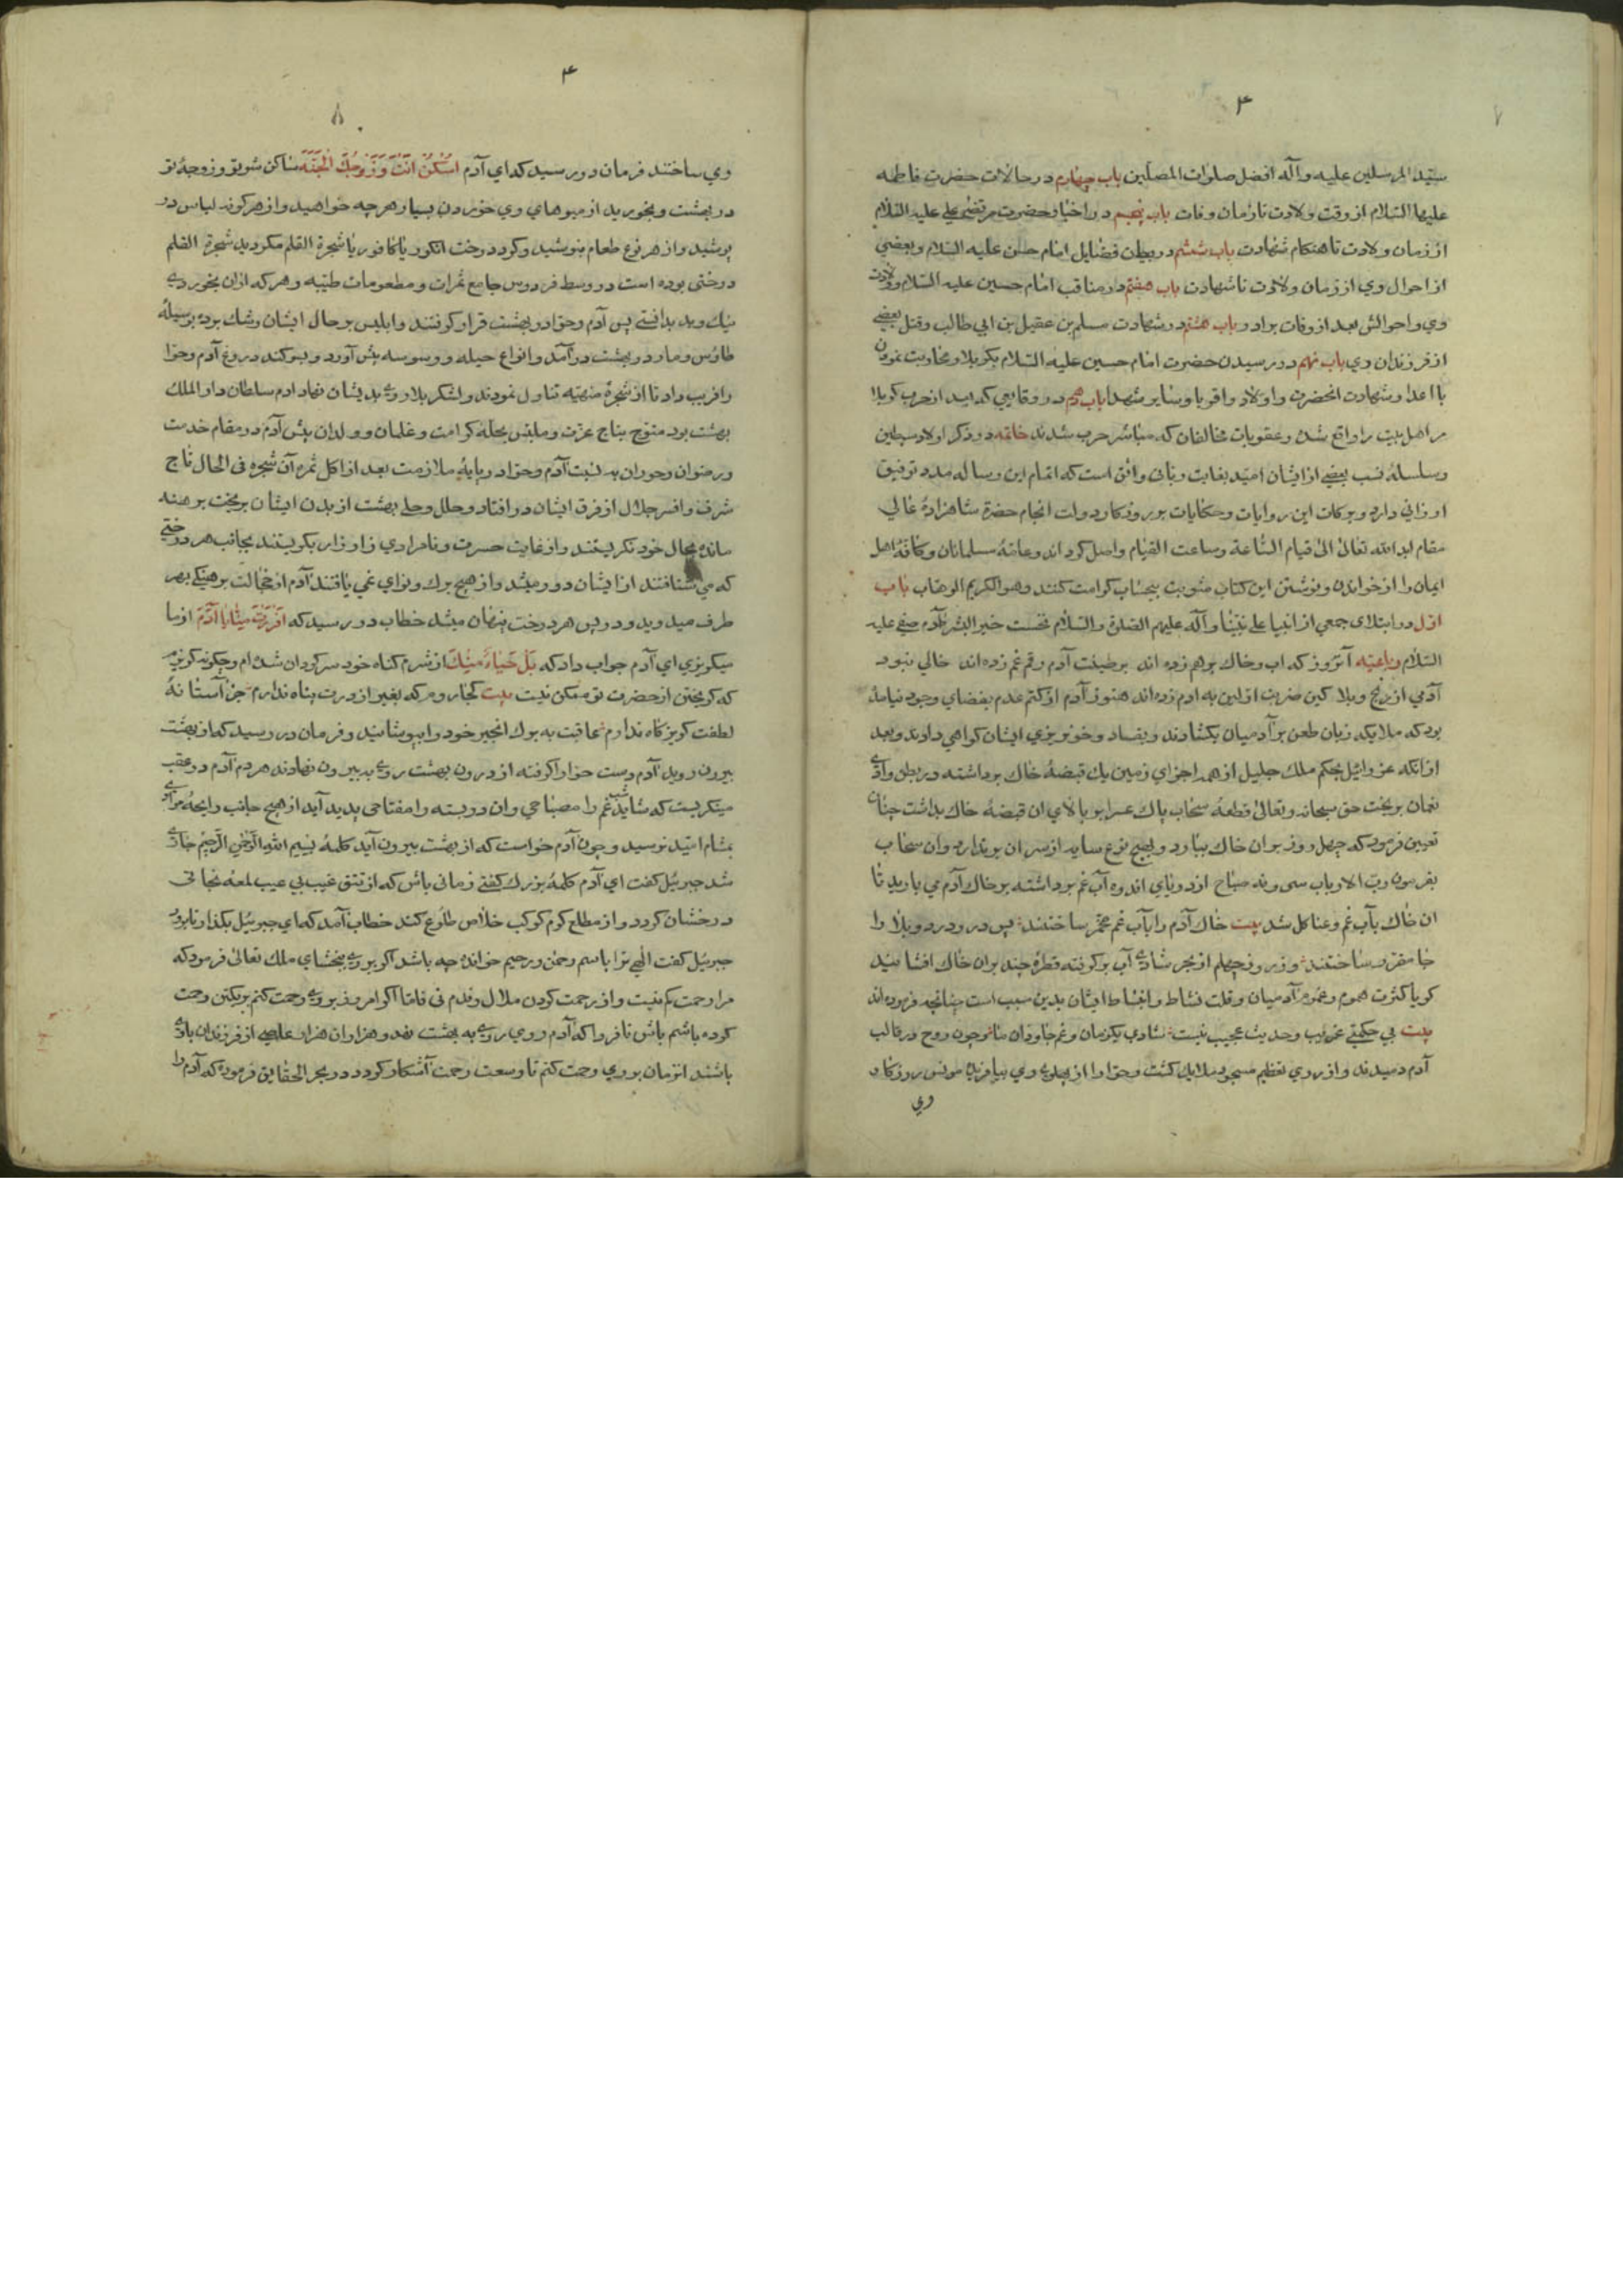 ۳
سیّد المرسلین علیه وآله افضل صلوات المصلّین باب چهارم در حالات حضرت فاطمه
علیها السّلام از وقت ولادت تا زمان وفات باب پنجم در اخبار حضرت مرتضی علی علیه السّلام
از زمان ولادت تا هنکام شهادت باب ششم در بیان فضایل امام حسن علیه السّلام وبعضی
از احوال وی از زمان ولادت تا شهادت باب هفتم در مناقب امام حسین علیه السّلام وولادت
وی واحوالش بعد از وفات برادر باب هشتم در شهادت مسلم بن عقیل بن ابی طالب وقتل بعضی
از فرزندان وی باب نهم در رسیدن حضرت امام حسین علیه السّلام بکربلا ومحاربت نمودن
با اعدا وشهادت انحضرت واولاد واقربا وسایر شهدا باب دهم در وقایعی که بعد از حرب کربلا
مر اهل بیت را واقع شد وعقوبات مخالفان که مباشر حرب شدند خاتمه در ذکر اولاد سبطین
وسلسلهٔ نسب بعضی از ایشان امید بغایت ربانی واثق است که اتمام این رساله مدد توفیق
ارزانی دارد وبرکات این روایات وحکایات بروزکار دولت انجام حضرة شاهزادهٔ عالی
مقام ابد الله تعالی الی قیام السّاعة وساعت القیام واصل کرداند وعامهٔ مسلمانان وکافهٔ اهل
ایمان را از خواندن ونوشتن این کتاب مثوبت بیحساب کرامت کنند وهو الکریم الوهّاب باب
اوّل در ابتلای جمعی از انبیا علی نبیّنا وآله علیهم الصلوة والسّلام نخست خیر البشر آدم صفی علیه
السّلام رباعیّه آنروز که اب وخاک برهم زده اند بر طینت آدم رقم غم زده اند خالی نبود
آدمی از رنج وبلا کین ضربت اوّلین به ادم زده اند هنوز آدم از کتم عدم بفضای وجود نیامده
بود که ملایکه زبان طعن بر آدمیان بکشادند وبفساد وخونریزی ایشان کواهی دادند وبعد
از انکه عزرائیل بحکم ملک جلیل از همه اجزای زمین یک قبضهٔ خاک برداشته در بطن وادی
نعمان بریخت حق سبحانه وتعالی قطعهٔ سحاب پاک بر بالای ان قبضهٔ خاک بداشت چنان
تعیین فرمود که چهل روز بر ان خاک ببارد وبهیچ نوع سایه از سر ان برندارد وان سحاب
بفرمون ربّ الارباب سی ونه صباح از دریای اندوه آب غم برداشته بر خاک آدم می بارید تا
ان خاک بآب غم وعنا کل شد بیت خاک آدم را بآب غم مخمّر ساختند پس در ودرد وبلا را
جا مقرر ساختند وز روز چهلم از بحر شادی آب برکرفته قطرهٔ چند بران خاک افشانید
کویا کثرت هموم وغموم آدمیان وقلت نشاط وانبساط ایشان بدین سبب است چنانچه فرموده اند
بیت بی حکمتی غریب وحدیث عجیب نیست شادی یکزمان وغم جاودان ما وچون روح در قالب
آدم دمیدند واز روی تعظیم مسجود ملایک کشت وحوّا را از پهلوی وی بیافرید مونس روزکار
وی
۴
۸
وی ساختند فرمان در رسید که ای آدم اُسْکُنْ اَنْتَ وَزَوْجُکَ الْجَنَّةَ ساکن شو تو وزوجهٔ تو
در بهشت وبخورید از میوهای وی خوردن بسیار هرچه خواهید واز هرکونه لباس در
پوشید واز هر نوع طعام بنوشید وکرد درخت انکور یا کافور یا شجرة القلم مکردید شجرة القلم
درختی بوده است در وسط فردوس جامع ثمرات ومطعومات طیّبه وهرکه ازان بخوردی
نیک وبد بدانستی پس آدم وحوّا در بهشت قرار کرفتند وابلیس بر حال ایشان رشک برده بوسیلهٔ
طاوس ومار در بهشت درآمد وانواع حیله ووسوسه پیش آورد وبسوکند دروغ آدم وحوّا
را فریب داد تا از شجرهٔ منهیّه تناول نمودند ولشکر بلا روی بدیشان نهاد ادم سلطان دار الملک
بهشت بود متوّج بتاج عزت وملبّس بحلهٔ کرامت وغلمان وولدان پیش آدم در مقام خدمت
ورضوان وحوران به نسبت آدم وحوّا در پایهٔ ملازمت بعد از اکل ثمره آن شجره فی الحال تاج
شرف وافسر جلال از فرق ایشان در افتاد وحلل وحلی بهشت از بدن ایشان بریخت برهنه
مانده بحال خود نکریستند واز غایت حسرت ونامرادی زار زار بکریستند بجانب هر درختی
که می شتافتند از ایشان دور میشد واز هیچ برک ونوای نمی یافتند آدم از خجالت برهنکی بهر
طرف میدوید ودر پس هر درخت پنهان میشد خطاب در رسید که اَفِرَرْتَ مِنّا یا آدَمُ از ما
میکریزی ای آدم جواب داد که بَلْ حَیاءً مِنْکَ از شرم کناه خود سرکردان شده ام وچکونه کریزم
که کریختن از حضرت تو ممکن نیست بیت کجا روم که بغیر از درت پناه ندارم جز آستانهٔ
لطفت کریزکاه ندارم عاقبت به برک انجیر خود را بپوشانید وفرمان در رسید که از بهشت
بیرون روید آدم دست حوا را کرفته از درون بهشت روی به بیرون نهادند هردم آدم در عقب
مینکریست که شاید شب غم را مصباحی وان در بسته را مفتاحی پدید آید از هیچ جانب رایحهٔ مرادی
بمشام امّید نرسید وچون آدم خواست که از بهشت بیرون آید کلمهٔ بسم الله الرّحمن الرّحیم جاری
شد جبرئیل کفت ای آدم کلمهٔ بزرک کفتی زمانی باش که از تتق غیب بی عیب لمعه نجاتی
درخشان کردد واز مطلع کرم کوکب خلاص طلوع کند خطاب آمد که ای جبرئیل بکذار تا برود
جبرئیل کفت الهی ترا باسم رحمن ورحیم خوانده چه باشد اکر بروی ببخشای ملک تعالی فرمود که
مرا رحمت کم نیست واز رحمت کردن ملال وندم نی فامّا اکر امروز بروی رحمت کنم بر یکتن رحمت
کرده باشم باش تا فردا که آدم روی به بهشت نهد وهزاران هزار عاصی از فرزندان باوی
باشند انزمان بروی رحمت کنم تا وسعت رحمت آشکار کردد در بحر الحقایق فرموده که آدم را